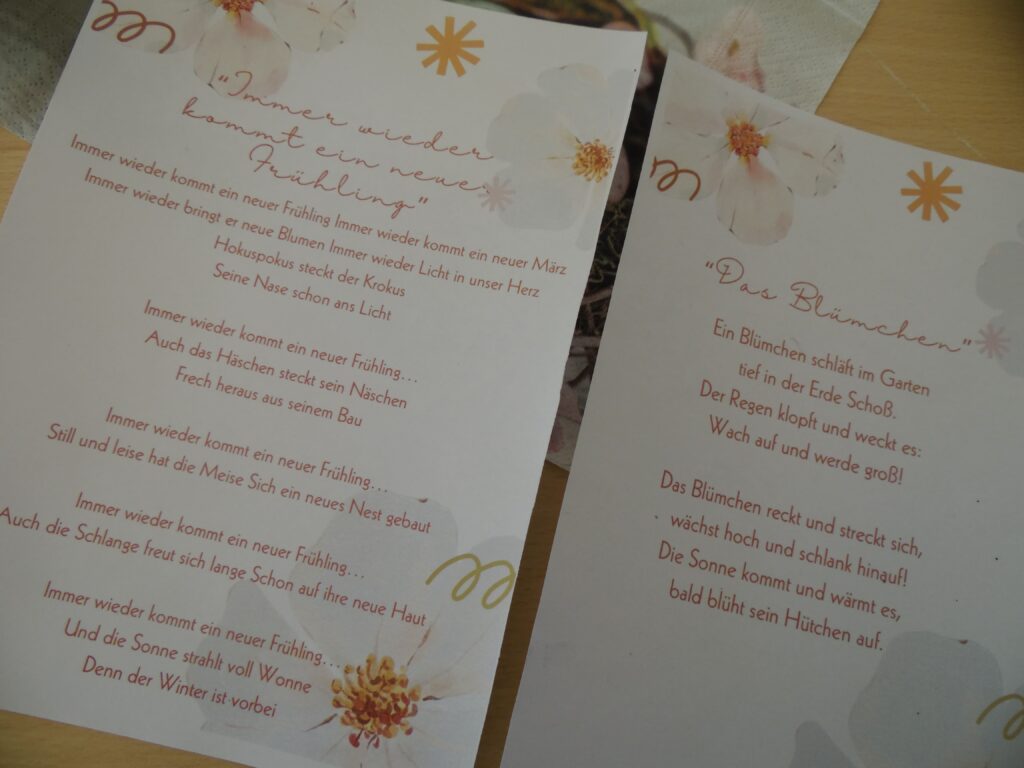 "Immer wieder
kommt ein neue
Frühling"
Immer wieder kommt ein neuer Frühling Immer wieder kommt ein neuer März
Immer wieder bringt er neue Blumen Immer wieder Licht in unser Herz
Hokuspokus steckt der Krokus
Seine Nase schon ans Licht
Immer wieder kommt ein neuer Frühling...
Auch das Häschen steckt sein Näschen
Frech heraus aus seinem Bau
Immer wieder kommt ein neuer Frühling...
Still und leise hat die Meise Sich ein neues Nest gebaut
Immer wieder kommt ein neuer Frühling...
Auch die Schlange freut sich lange Schon auf ihre neue Haut
Immer wieder kommt ein neuer Frühling...
Und die Sonne strahlt voll Wonne
Denn der Winter ist vorbei
"Das Blümchen"
Ein Blümchen schläft im Garten
tief in der Erde Schoß.
Der Regen klopft und weckt es:
Wach auf und werde groß!
Das Blümchen reckt und streckt sich,
wächst hoch und schlank hinauf!
Die Sonne kommt und wärmt es,
bald blüht sein Hütchen auf.